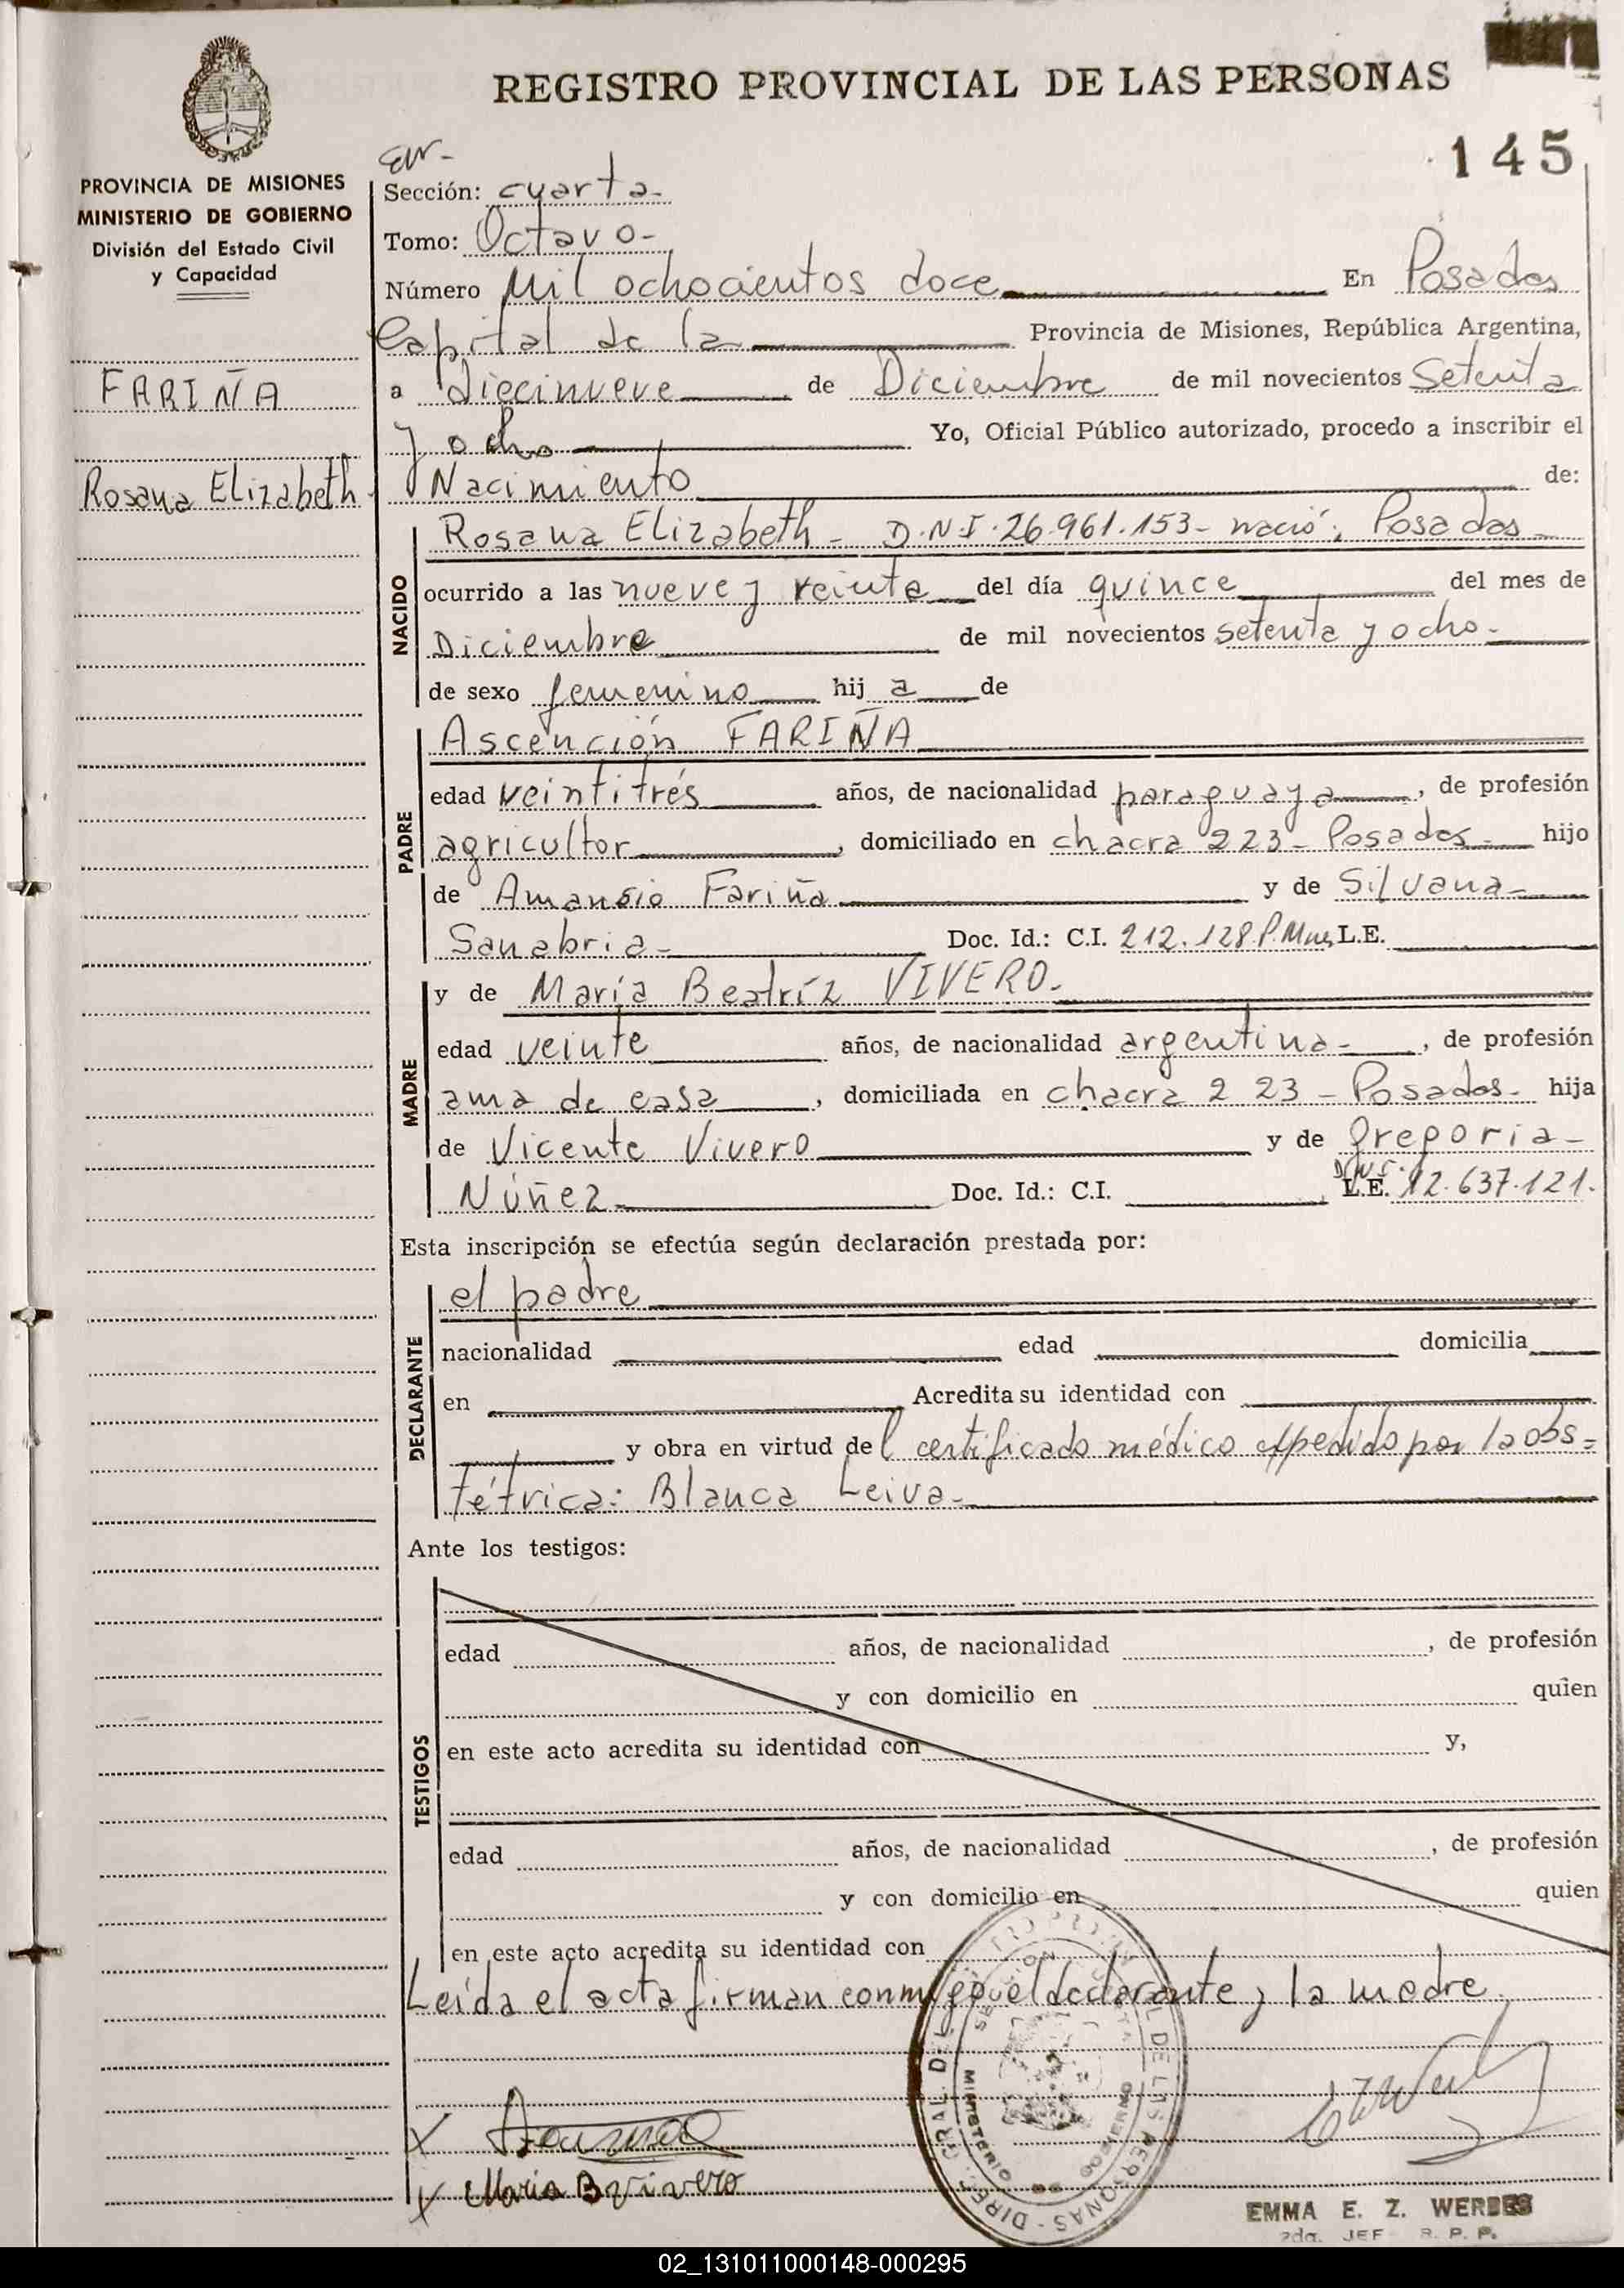 REGISTRO PROVINCIAL DE LAS PERSONAS
145
PROVINCIA DE MISIONES
MINISTERIO DE GOBIERNO
División del Estado Civil
y Capacidad
FARIÑA
Rosana Elizabeth
Sección: cuarta-
Tomo: Octavo-
Número Mil ochocientos doce En Posadas
Capital de la Provincia de Misiones, República Argentina,
a diecinueve de Diciembre de mil novecientos Setenta
y ocho Yo, Oficial Público autorizado, procedo a inscribir el
Nacimiento de:
NACIDO
Rosana Elizabeth - D.N.I. 26.961.153- nació: Posadas-
ocurrido a las nueve y treinta del día quince del mes de
Diciembre de mil novecientos setenta y ocho-
de sexo femenino hij a de
PADRE
Ascención FARIÑA
edad veintitrés años, de nacionalidad paraguaya, de profesión
agricultor, domiciliado en chacra 223- Posadas- hijo
de Amansio Fariña y de Silvana-
Sanabria- Doc. Id.: C.I. 212.128 P.Mnes L.E.
MADRE
y de María Beatríz VIVERO-
edad veinte años, de nacionalidad argentina-, de profesión
ama de casa, domiciliada en chacra 223 - Posadas- hija
de Vicente Vivero y de Gregoria-
Núñez Doc. Id.: C.I. L.E. D.N.I. 12.637.121.
Esta inscripción se efectúa según declaración prestada por:
DECLARANTE
el padre
nacionalidad edad domicilia
en Acredita su identidad con
y obra en virtud del certificado médico expedido por la obs=
tétrica: Blanca Leiva-
Ante los testigos:
TESTIGOS
edad años, de nacionalidad , de profesión
y con domicilio en quien
en este acto acredita su identidad con y,
edad años, de nacionalidad , de profesión
y con domicilio en quien
en este acto acredita su identidad con
Leída el acta firman conmigo el declarante y la madre.
DIREC. GRAL. DEL DE LAS PERSONAS
MINISTERIO GOBIERNO
X
X María B Vivero
EMMA E. Z. WERDES
2da. JEF R. P. P.
02_131011000148-000295